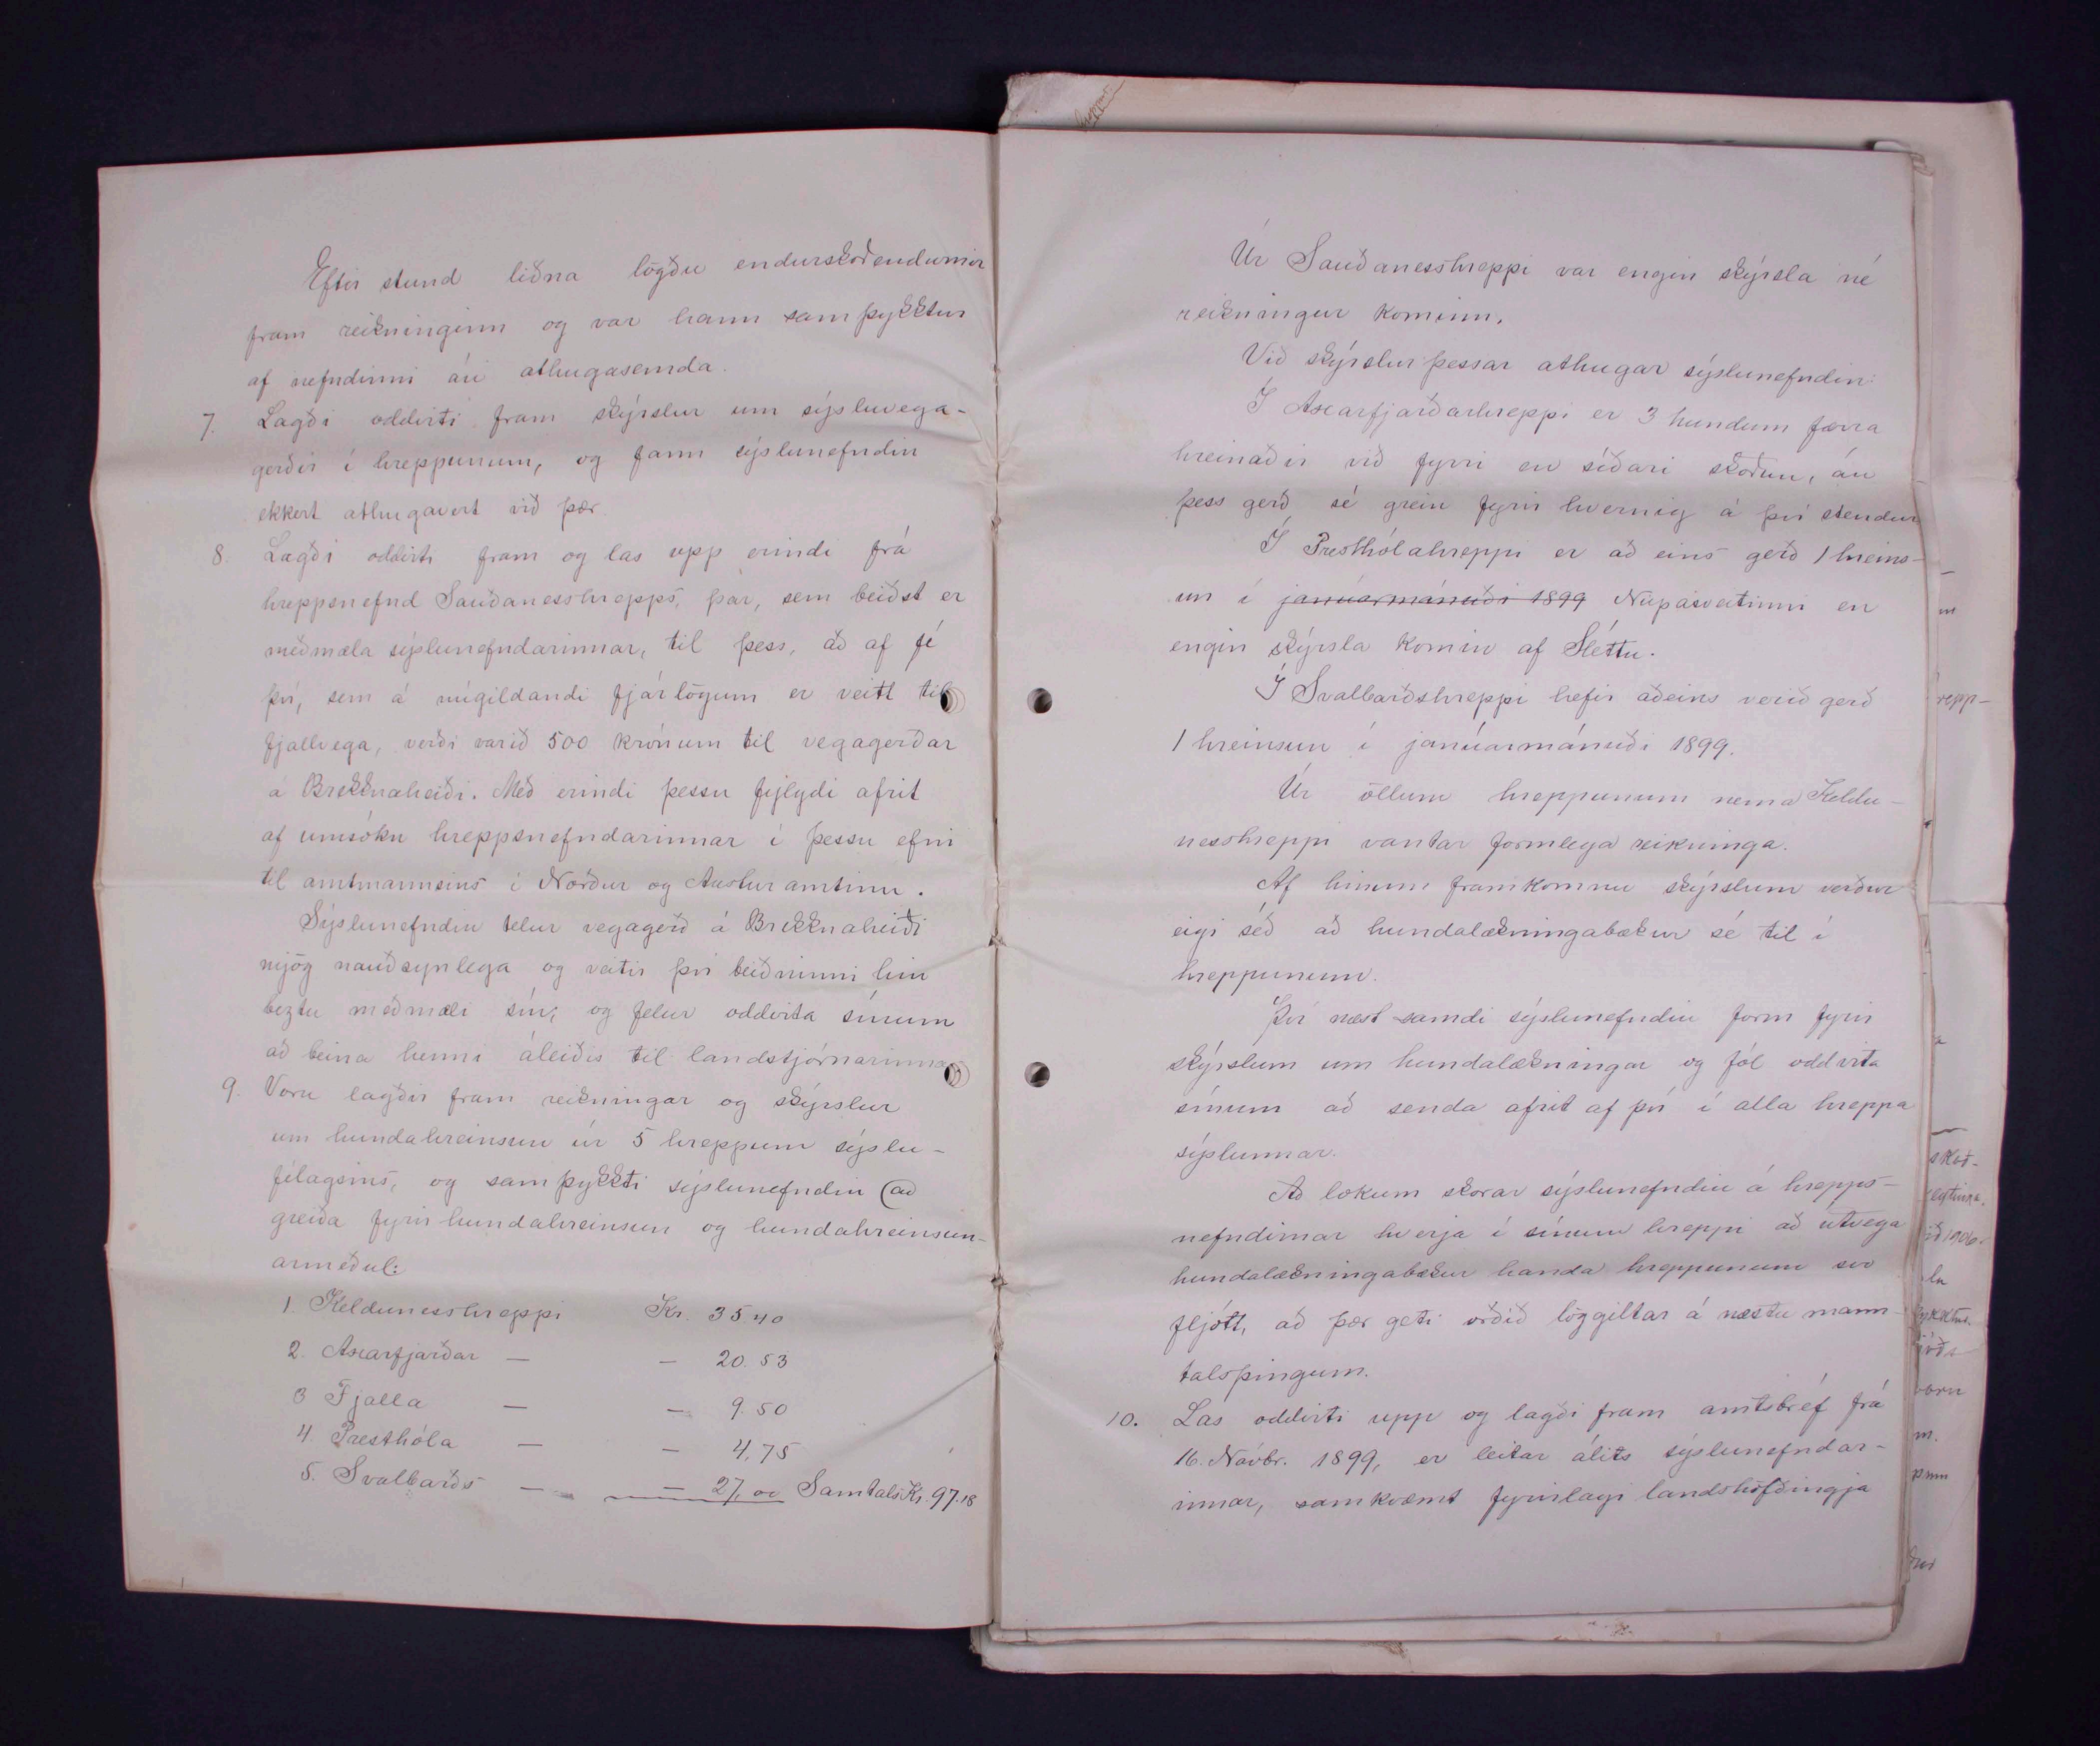 Eftir stund liðna lögðu endurskoðendurnir
fram reikninginn og var hann samþykktur
af nefndinni án athugasemda.
7. Lagði oddviti fram skýrslur um sýsluvega-
gerðir í hreppunum, og fann sýslunefndin
ekkert athugavert við þær.
8. Lagði oddviti fram og las upp erindi frá
hreppsnefnd Sauðanesshrepps, þar, sem beiðst er
meðmæla sýslunefndarinnar, til þess, að af fé
því, sem á núgildandi fjárlögum er veitt til
fjallvega, verði varið 500 krónum til vegagerðar
á Brekknaheiði. Með erindi þessu fylgdi afrit
af umsókn hreppsnefndarinnar í þessu efni
til amtmannsins í Norður og Austuramtinu.
Sýslunefndin telur vegagerð á Brekknaheiði
mjög nauðsynlega og veitir því beiðninni hin
beztu meðmæli sín; og felur oddvita sínum
að beina henni áleiðis til landstjórnarinnar.
9. Voru lagðir fram reikningar og skýrslur
um hundahreinsun úr 5 hreppum sýslu-
félagsins, og samþykkti sýslunefndin að
greiða fyrir hundahreinsun og hundahreinsun-
armeðul:
1. Keldunesshreppi Kr. 35 40
2. Axarfjarðar — — 20. 53
3 Fjalla — — 9. 50
4. Presthóla — — 4,75
5. Svalbarðs — — 27, 00 Samtals Kr. 97.18
Úr Sauðanesshreppi var engin skýrsla né
reikningur kominn.
Við skýrslur þessar athugar sýslunefndin:
Í Axarfjarðarhreppi er 3 hundum færra
hreinaðir við fyrri en síðari skoðun, án
þess gerð sé grein fyrir hvernig á því stendur
Í Presthólahreppi er að eins gerð 1 hreins-
un í janúarmánuði 1899 Núpasveitinni en
engin skýrsla komin af Sléttu.
Í Svalbarðshreppi hefir aðeins verið gerð
1 hreinsun í janúarmánuði 1899.
Úr öllum hreppunum nema Keldu-
nesshreppi vantar formlega reikninga.
Af hinum framkomnu skýrslum verður
eigi séð að hundalækningabækur sé til í
hreppunum.
Því næst samdi sýslunefndin form fyrir
skýrslum um hundalækningar og fól oddvita
sínum að senda afrit af því í alla hreppa
sýslunnar.
Að lokum skorar sýslunefndin á hrepps-
nefndirnar hverja í sínum hreppi að útvega
hundalækningabækur handa hreppunum svo
fljótt, að þær geti orðið löggiltar á næstu mann-
talsþingum.
10. Las oddviti upp og lagði fram amtsbréf frá
16. Nóvbr. 1899, er leitar álits sýslunefndar-
innar, samkvæmt fyrirlagi landshöfðingja